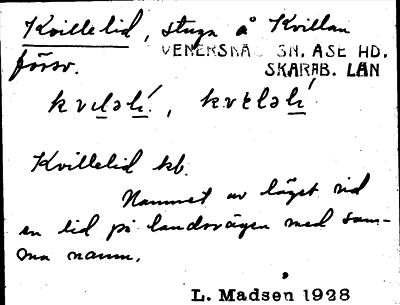 Kvillelid, stuga å Kvillan
VENERSNÄS SN. ÅSE HD.
försv.
SKARAB. LÄN
kvɩləlí, kvɛləlí
Kvillelid kb.
Namnet av läget vid
en lid på landsvägen med sam-
ma namn.
L. Madsen 1928